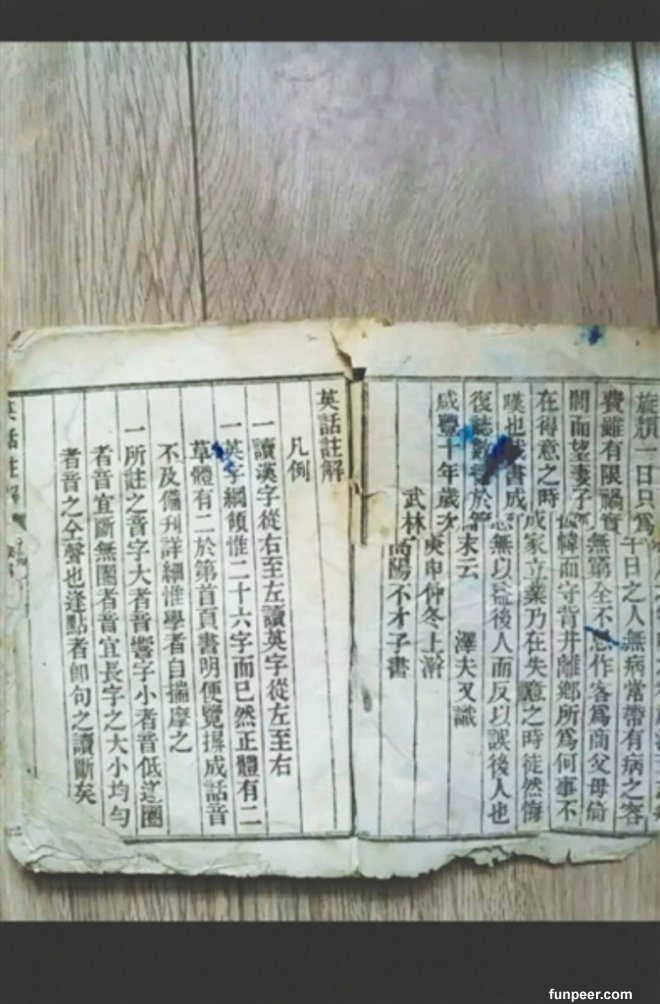 旋頹一日只爲千日之人無病常帶有病之容
費雖有限禍實無窮全不思作客爲商父母倚
閭而望妻子
幃而守背井離鄉所爲何事不
在得意之時成家立業乃在失意之時徒然悔
嘆也或書成
無以益後人而反以誤後人也
復誌數語於
末云
澤夫又識
咸豐十年歲次庚申仲冬上澣
武林高陽不才子書
英話註解
凡例
一讀漢字從右至左讀英字從左至右
一英字綱領惟二十六字而已然正體有二
草體有二於第首頁書明便覽摒成話音
不及備刊詳細惟學者自揣摩之
一所註之音字大者音響字小者音低逢圈
者音宜斷無圈者音宜長字之大小均勻
者音之仝聲也逢點者卽句之讀斷矣
英話註解
funpeer.com